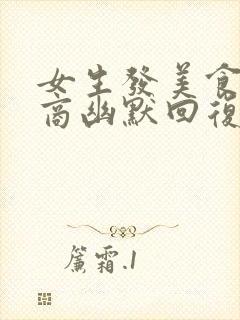 女生發美食
商幽默回復
簾霜.1